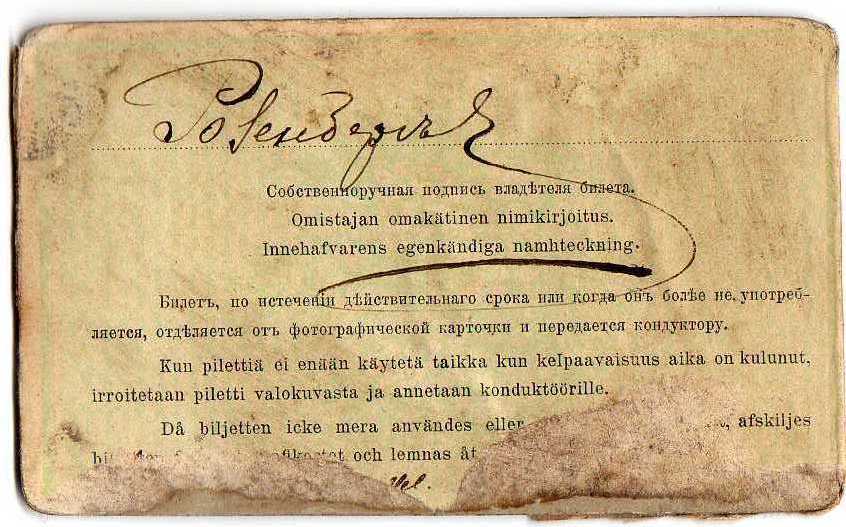 Розенбергъ
Собственноручная подпись владѣтеля билета.
Omistajan omakätinen nimikirjoitus.
Innehafvarens egenkändiga namhteckning.
Билетъ, по истеченіи дѣйствительнаго срока или когда онъ болѣе не употреб-
ляется, отдѣляется отъ фотографической карточки и передается кондуктору.
Kun pilettiä ei enään käytetä taikka kun kelpaavaisuus aika on kulunut,
irroitetaan piletti valokuvasta ja annetaan konduktöörille.
Då biljetten icke mera användes eller afskiljes
och lemnas åt